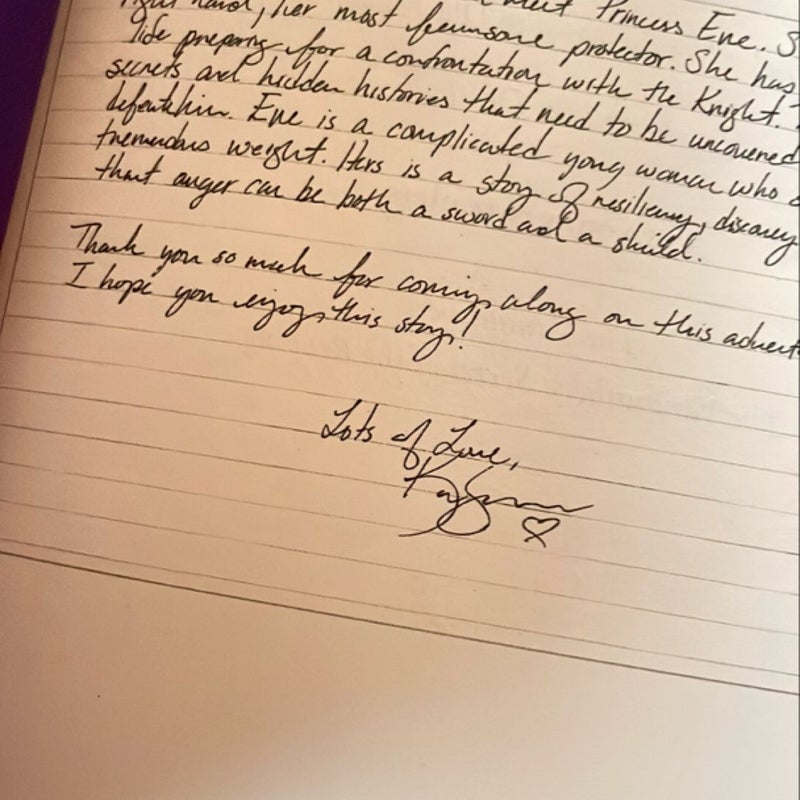 meet Princess Eve. S
right hand, her most fearsome protector. She has
life preparing for a confrontation with the Knight.
secrets and hidden histories that need to be uncovered
defeat him. Eve is a complicated young woman who
tremendous weight. Hers is a story of resiliency, discovery
that anger can be both a sword and a shield.
Thank you so much for coming along on this advent
I hope you enjoy this story!
Lots of Love,